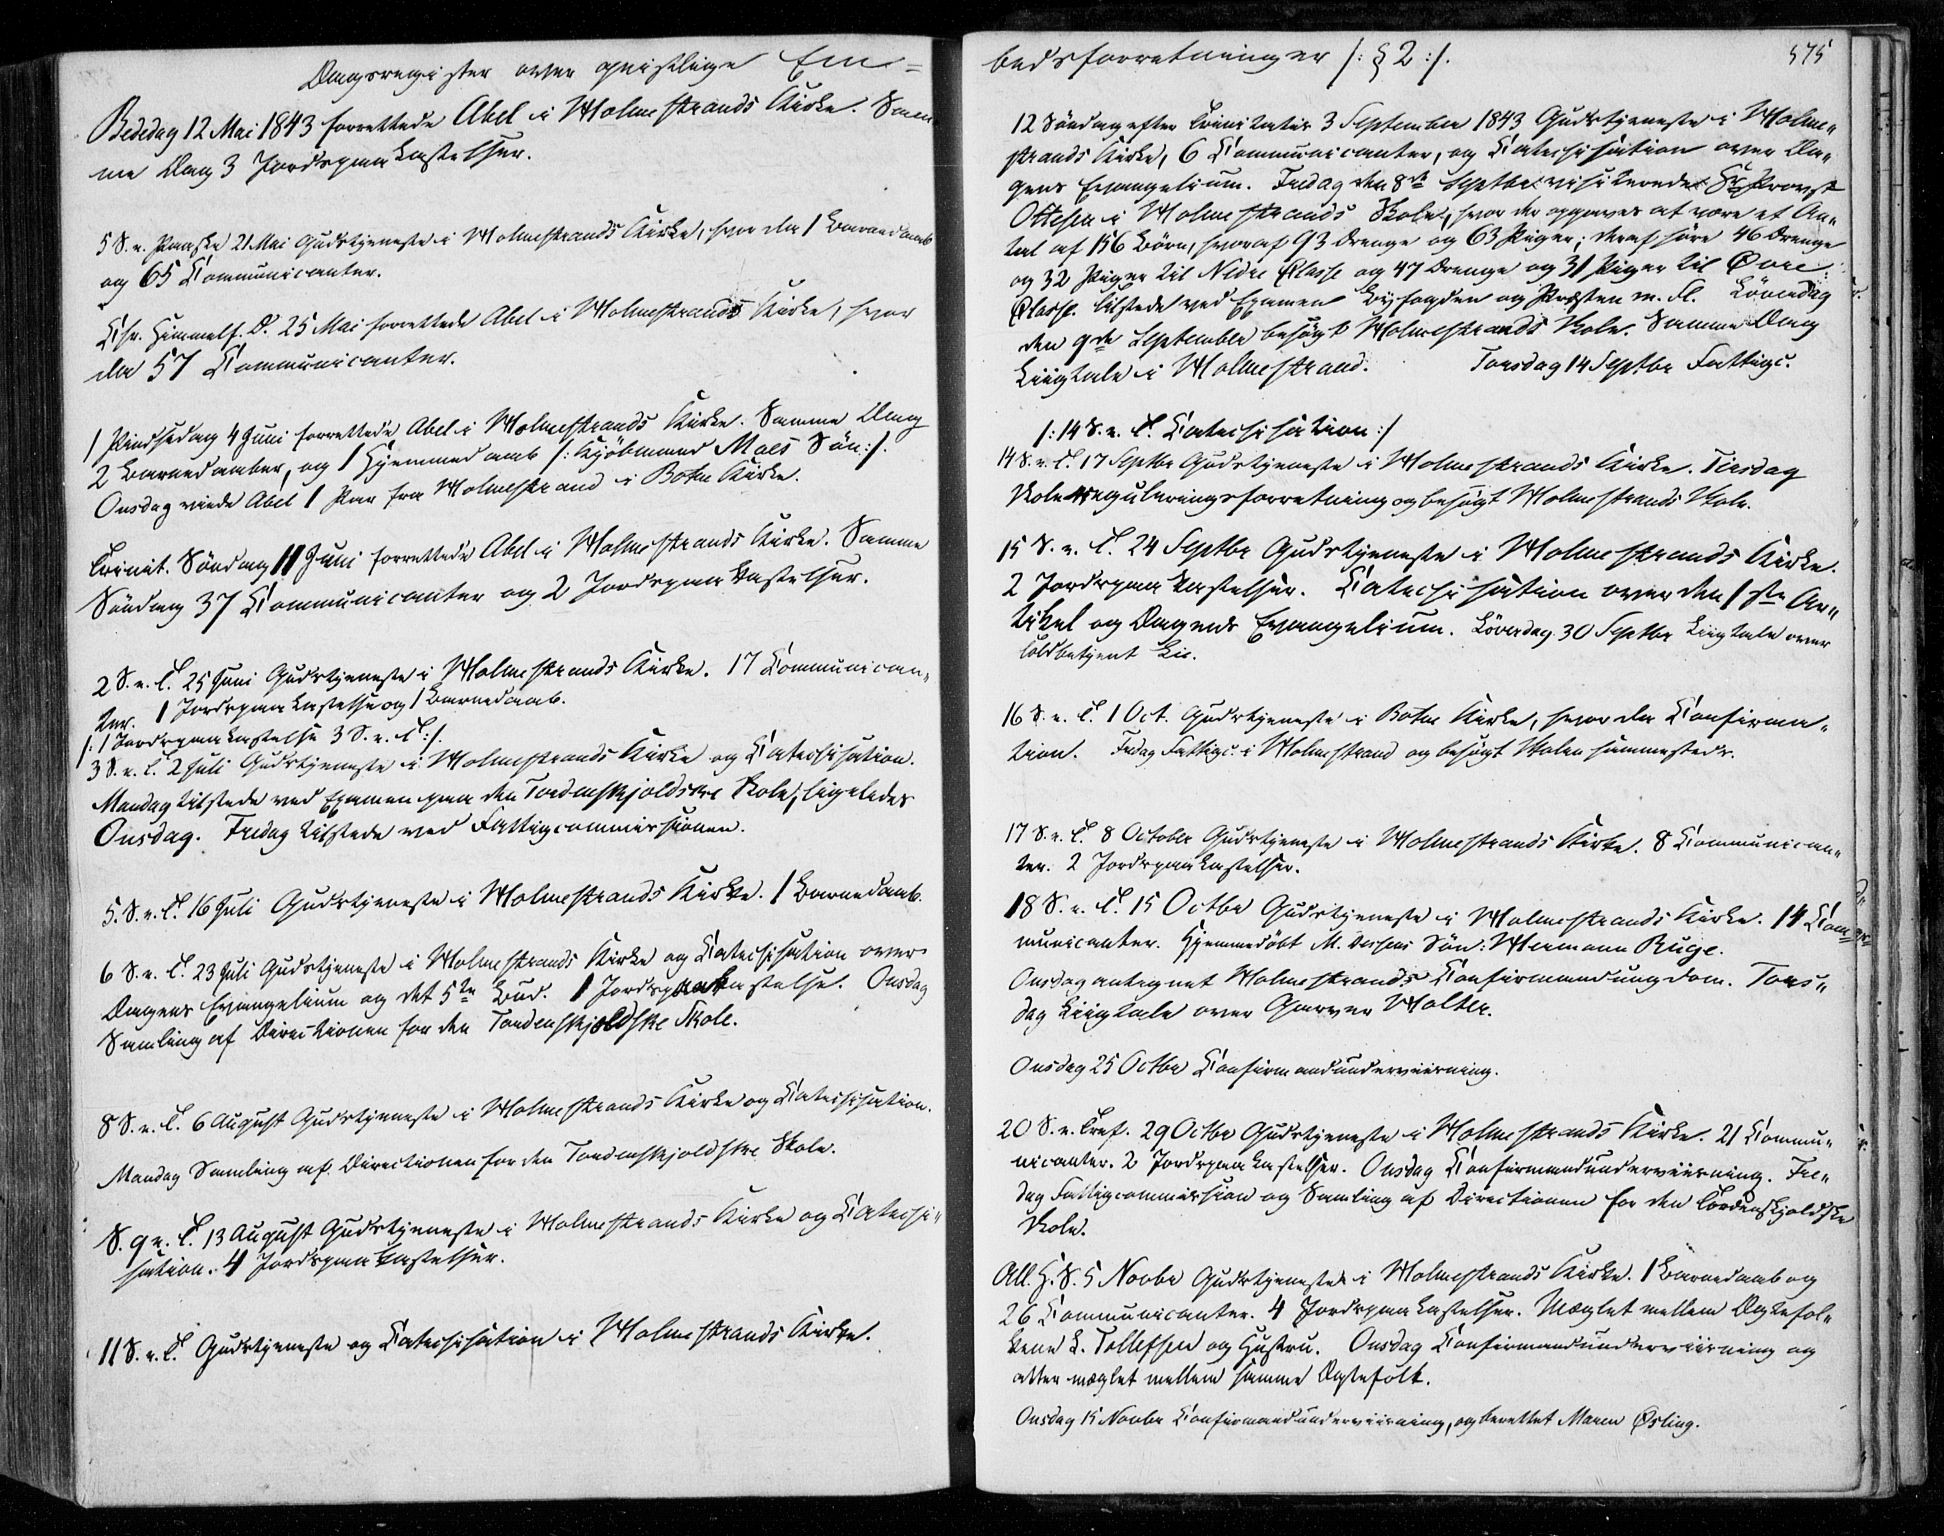 Dagsregister over geistlige Em=
Bededag 12 Mai 1843 forrettede Abel i Holmestrands Kirke. Sam
me Dag 3 Jordspaakastelser.
5 S. e. Paaske 21 Mai Gudstjeneste i Holmestrands Kirke, hvor der 1 Barnedaab
og 65 Communicanter.
Chr. Himmelf. D. 25 Mai forrettede Abel i Holmestrands Kirke, hvor
der 57 Communicanter.
1 Pindsedag 4 Juni forrettede Abel i Holmestrands Kirke. Samme Dag
2 Barnedaaber, og 1 Hjemmedaab /: Kjöbmand Maes Sön :/.
Onsdag viede Abel 1 Par fra Holmestrand i Botne Kirke.
Trinit. Söndag 11 Juni forrettede Abel i Holmestrands Kirke. Samme
Söndag 37 Communicanter og 2 Jordspaakastelser.
2 S. e. T. 25 Juni Gudstjeneste i Holmestrands Kirke. 17 Communican„
ter. 1 Jordspaakastelse og 1 Barnedaab.
/: 1 Jordspaakastelse 3 S. e. T :/.
3 S. e. T. 2 Juli Gudstjeneste i Holmestrands Kirke og Catechisation.
Mandag tilstede ved Examen paa den Tordenskjoldske Skole, ligeledes
Onsdag. Fredag tilstede ved Fattigcommissionen.
5. S. e. T. 16 Juli Gudstjeneste i Holmestrands Kirke. 1 Barnedaab.
6 S. e. T. 23 Juli Gudstjeneste i Holmestrands Kirke og Catechisation over
Dagens Evangelium og det 5te Bud. 1 Jordspaakastelse. Onsdag
Samling af Directionen for den Tordenskjoldske Skole.
8 S. e. T. 6 August Gudstjeneste i Holmestrands Kirke og Catechisation.
Mandag Samling af Directionen for den Tordenskjoldske Skole.
S. 9 e. T. 13 August Gudstjeneste i Holmestrands Kirke og Catechi„
sation. 4 Jordspaakastelser.
11 S. e. T. Gudstjeneste og Catechisation i Holmestrands Kirke.
bedsforretninger /: § 2 :/.
575
12 Söndag efter Trinitatis 3 September 1843 Gudstjeneste i Holme„
strands Kirke, 6 Communicanter, og Catechisation over Da„
gens Evangelium. Fredag den 8de Septbr visiterede Hr Provst
Ottesen i Holmestrands Skole, hvor der opgaves at være et An„
tal af 156 Börn, hvoraf 93 Drenge og 63 Piger; deraf höre 46 Drenge
og 32 Piger til Nedre Classe og 47 Drenge og 31 Piger til Övre
Classe. Tilstede ved Examen Byfogden og Præsten m. Fl. Löverdag
den 9de September besögt Holmestrands Skole. Samme Dag
Liigtale i Holmestrand. Torsdag 14 Septbr Fattigc.
/: 14 S. e. T. Catechisation :/
14 S. e. T. 17 Septbr Gudstjeneste i Holmestrands Kirke. Tirsdag
Skolereguleringsforretning og besögt Holmestrands Skole.
15 S. e. T. 24 Septbr Gudstjeneste i Holmestrands Kirke.
2 Jordspaakastelser. Catechisation over den 1ste Ar„
tikel og Dagens Evangelium. Löverdag 30 Septbr Liigtale over
Toldbetjent Lie.
16 S. e. T. 1 Oct. Gudstjeneste i Botne Kirke, hvor der Confirma„
tion. Fredag Fattigc. i Holmestrand og besögt Skolen sammesteds.
17 S. e. T. 8 October Gudstjeneste i Holmestrands Kirke. 8 Communican„
ter. 2 Jordspaakastelser.
18 S. e. T. 15 Octbr Gudstjeneste i Holmestrands Kirke. 14 Com
municanter. Hjemmedöbt M. Sön: Hermann Ruge.
Onsdag antegnet Holmestrands Confirmandungdom. Tors„
dag Liigtale over Garver Holter.
Onsdag 25 Octbr Confirmandunderviisning.
20 S. e. Tref. 29 Octbr Gudstjeneste i Holmestrands Kirke. 21 Commu„
nicanter. 2 Jordspaakastelser. Onsdag Confirmandunderviisning. Fre„
dag Fattigcommission og Samling af Directionen for den Tordenskjoldske
Skole.
All. H. S. 5 Novbr Gudstjeneste i Holmestrands Kirke. 1 Barnedaab og
26 Communicanter. 4 Jordspaakastelser. Mæglet mellem Ægtefol„
kene L. Tollefsen og Hustru. Onsdag Confirmandunderviisning og
atter mæglet mellem samme Ægtefolk.
Onsdag 15 Novbr Confirmandunderviisning, og berettet Maren Østing.